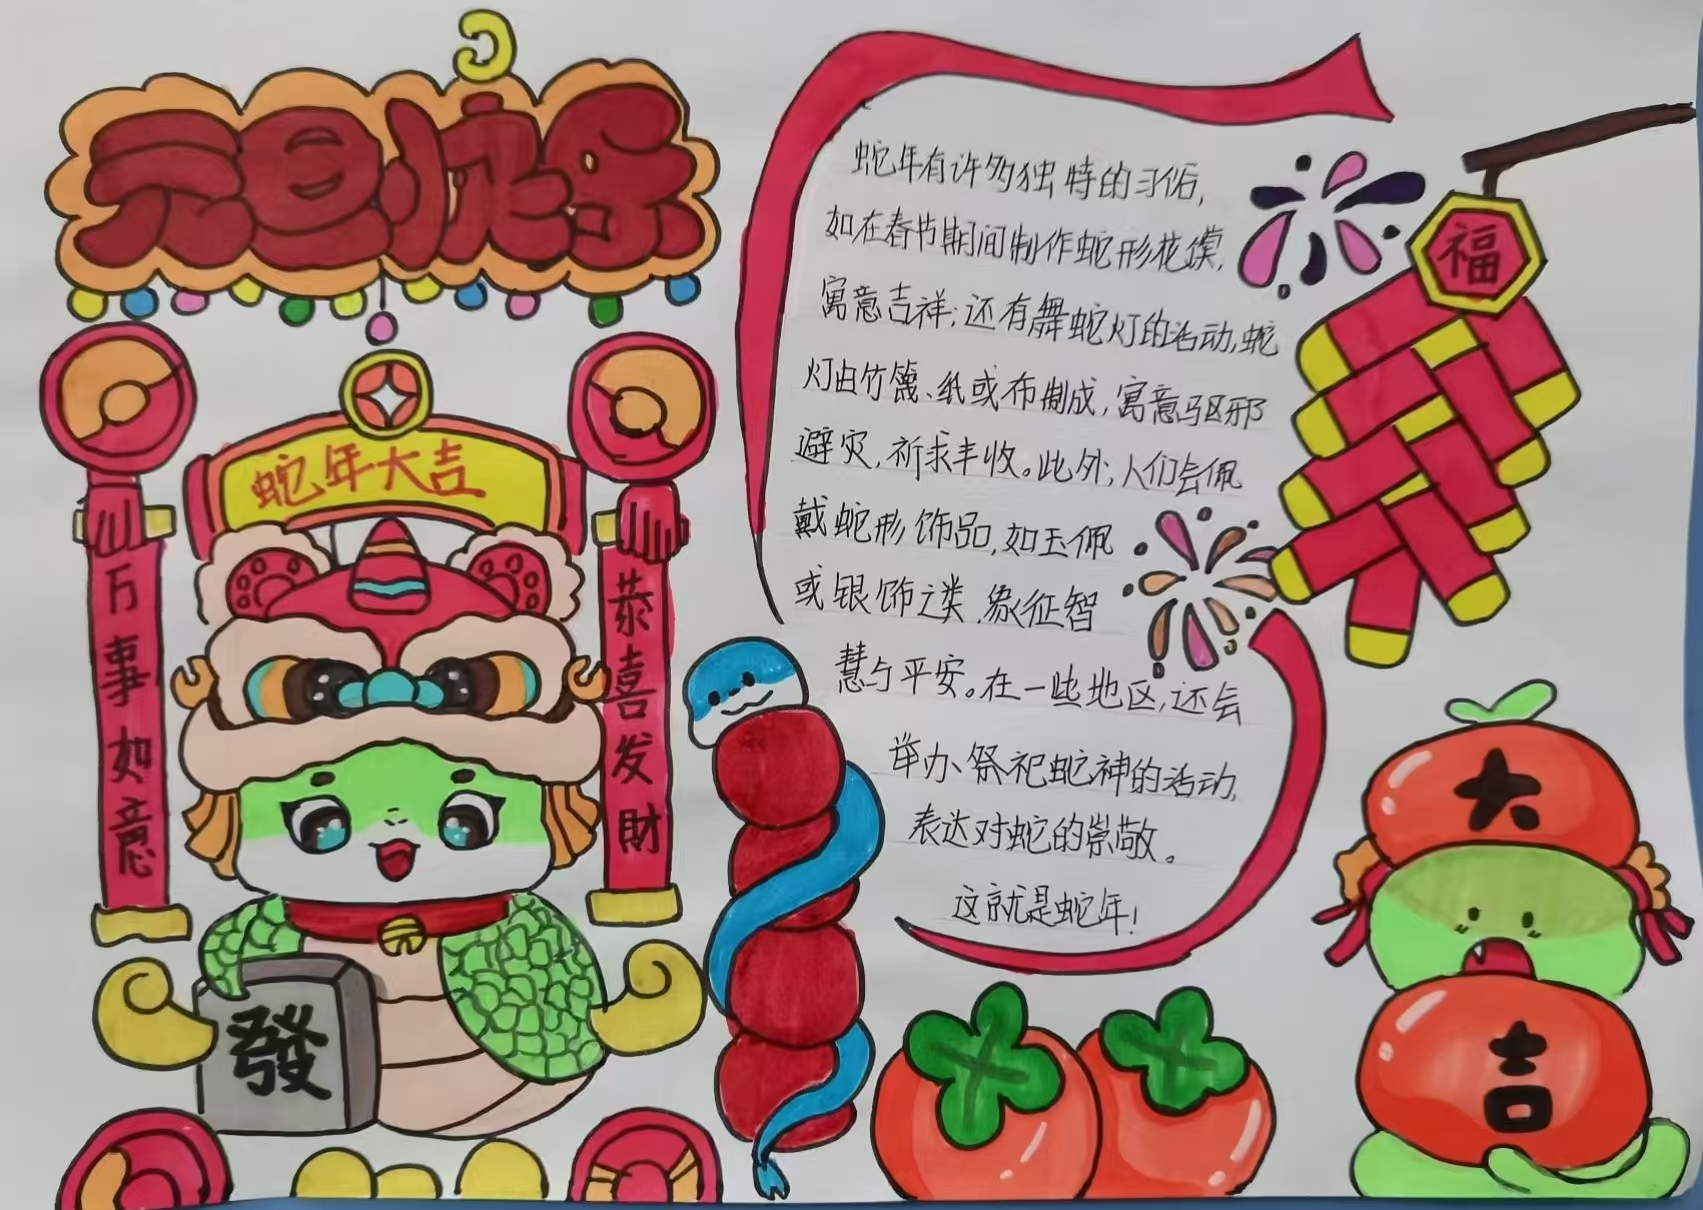 元旦快乐
蛇年大吉
万事如意
恭喜发財
發
蛇年有许多独特的习俗,
如在春节期间制作蛇形花馍,
寓意吉祥;还有舞蛇灯的活动,蛇
灯由竹篾、纸或布制成,寓意驱邪
避灾,祈求丰收。此外;人们会佩
戴蛇形饰品,如玉佩
或银饰之类,象征智
慧与平安。在一些地区,还会
举办、祭祀蛇神的活动,
表达对蛇的崇敬。
这就是蛇年!
福
大
吉